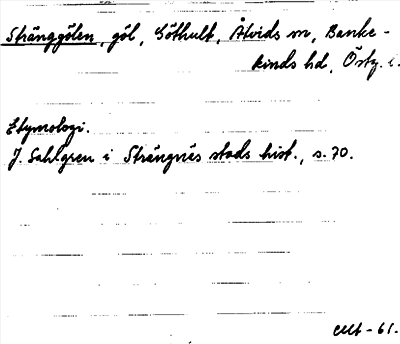 Stränggölen, göl, Göthult, Åtvids sn, Banke-
kinds hd, Östg. l.
Etymologi.
J. Sahlgren i Strängnäs stads hist., s. 70.
-61.